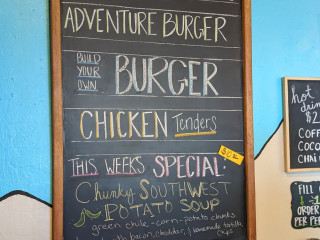 ADVENTURE BURGER
BUILD YOUR OWN BURGER
CHICKEN Tenders
THIS WEEKS SPECIAL:
Chunky SOUTHWEST
POTATO SOUP
green chile - corn - potato chunks
bacon, cheddar, & homemade tortilla
chips
hot
drin
$2
COFF
COCO
CHAI
FILL
ORDER
PER PE